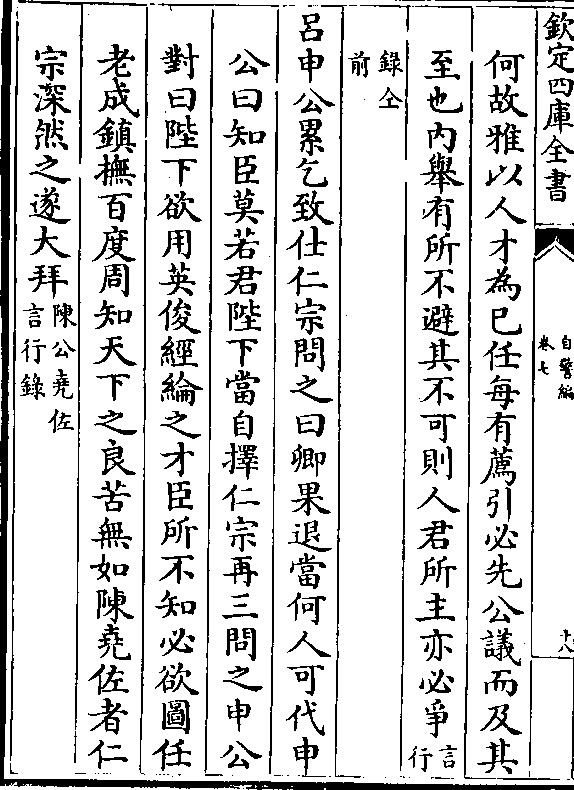 欽定四庫全書
自警編
卷七
十八
何故雅以人才為已任每有薦引必先公議而及其
至也内舉有所不避其不可則人君所主亦必爭言行
錄仝前
呂申公累乞致仕仁宗問之曰卿果退當何人可代申
公曰知臣莫若君陛下當自擇仁宗再三問之申公
對曰陛下欲用英俊經綸之才臣所不知必欲圖任
老成鎮撫百度周知天下之良苦無如陳堯佐者仁
宗深然之遂大拜陳公堯佐言行錄